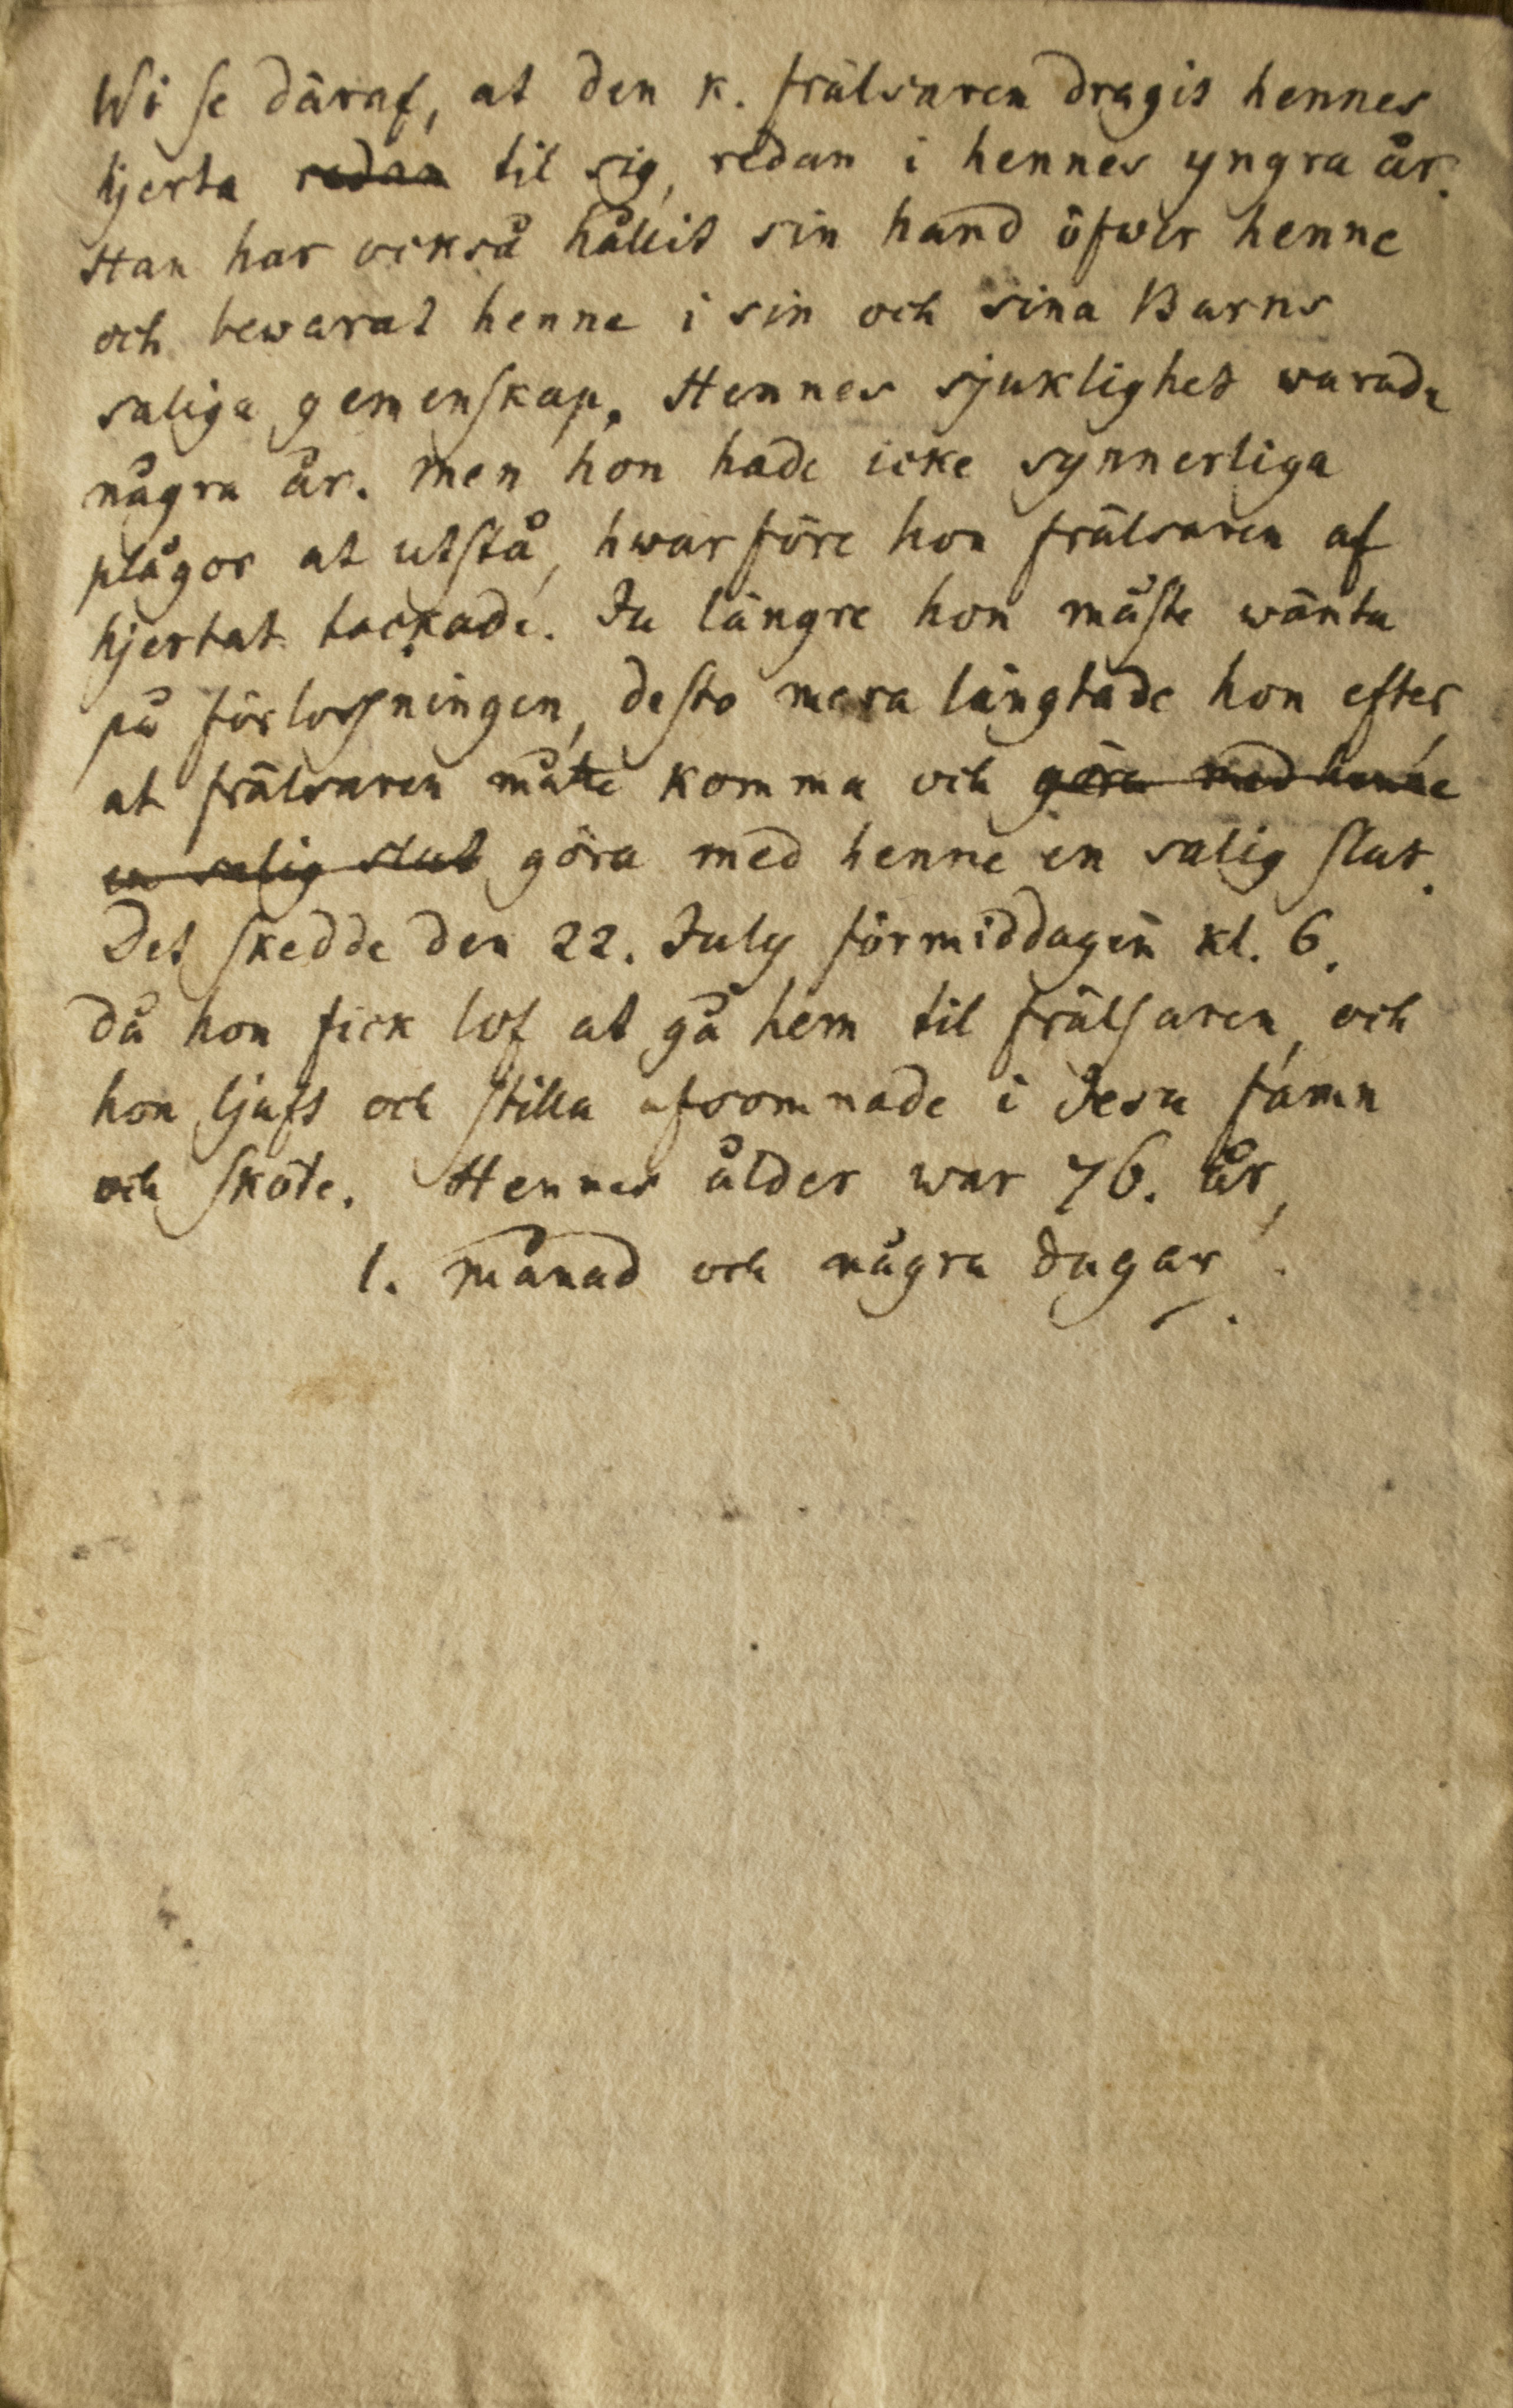 Wi se däraf, at den k. frälsaren dragit hennes
hjerta redan til sig, redan i hennes yngra år.
Han har också hållit sin hand öfwer henne
och bewarat henne i sin och sina Barns
saliga gemenskap. Hennes sjuklighet warade
några år. men hon hade icke synnerliga
plågor at utstå, hwarföre hon frälsaren af
hjertat tackade. Ju längre hon måste wänta
på förlossningen, desto mera längtade hon efter,
at frälsaren måtte komma och göra med henne
en salig slut göra med henne en salig slut.
Det skedde den 22. July förmiddagen kl. 6.
då hon fick lof at gå hem til frälsaren, och
hon ljuft och stilla afsomnade i Jesu famn
och sköte. Hennes ålder war 76. år,
1. månad och några dagar.